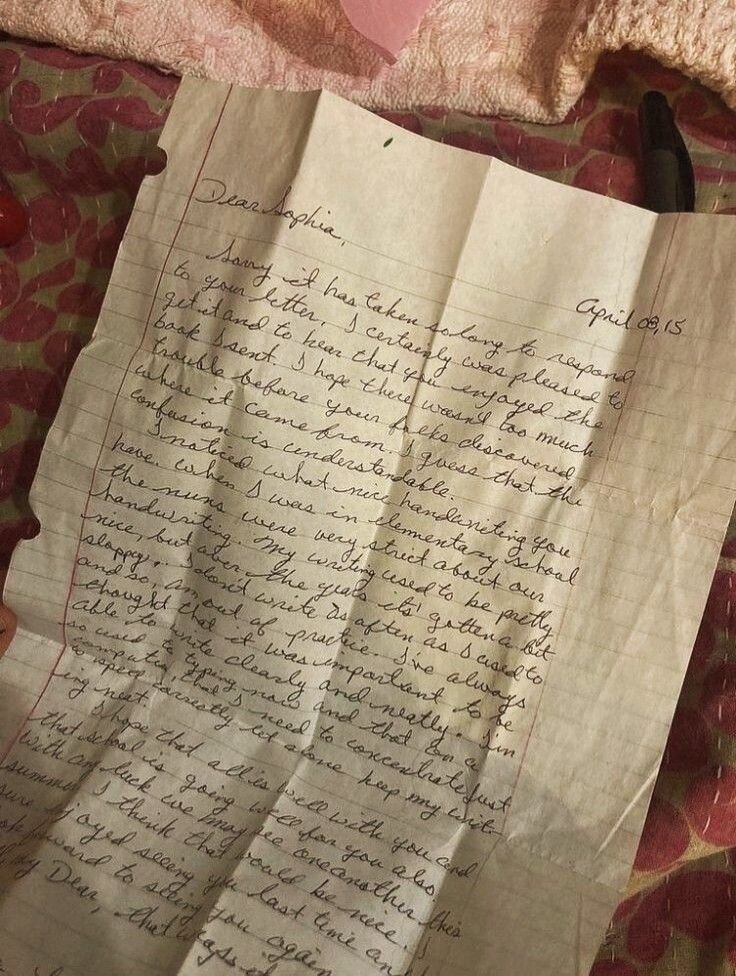 Dear Sophia,
April 08, 15
Sorry it has taken so long to respond
to your letter. I certainly was pleased to
get it and to hear that you enjoyed the
book I sent. I hope there wasn't too much
trouble before your folks discovered
where it came from. I guess that the
confusion is understandable.
I noticed what nice handwriting you
have. When I was in elementary school
the nuns were very strict about our
handwriting. My writing used to be pretty
nice, but over the years it's gotten a bit
sloppy. I don't write as often as I used to
and so, am out of practice. I've always
thought that it was important to be
able to write clearly and neatly. I'm
so used to typing now and that on a
computer, that I need to concentrate just
to spell correctly let alone keep my writ-
ing neat.
I hope that all is well with you and
that school is going well for you also
With any luck we may see oneanother this
summer. I think that would be nice. I
sure enjoyed seeing you last time and
look forward to seeing you again
My Dear, that